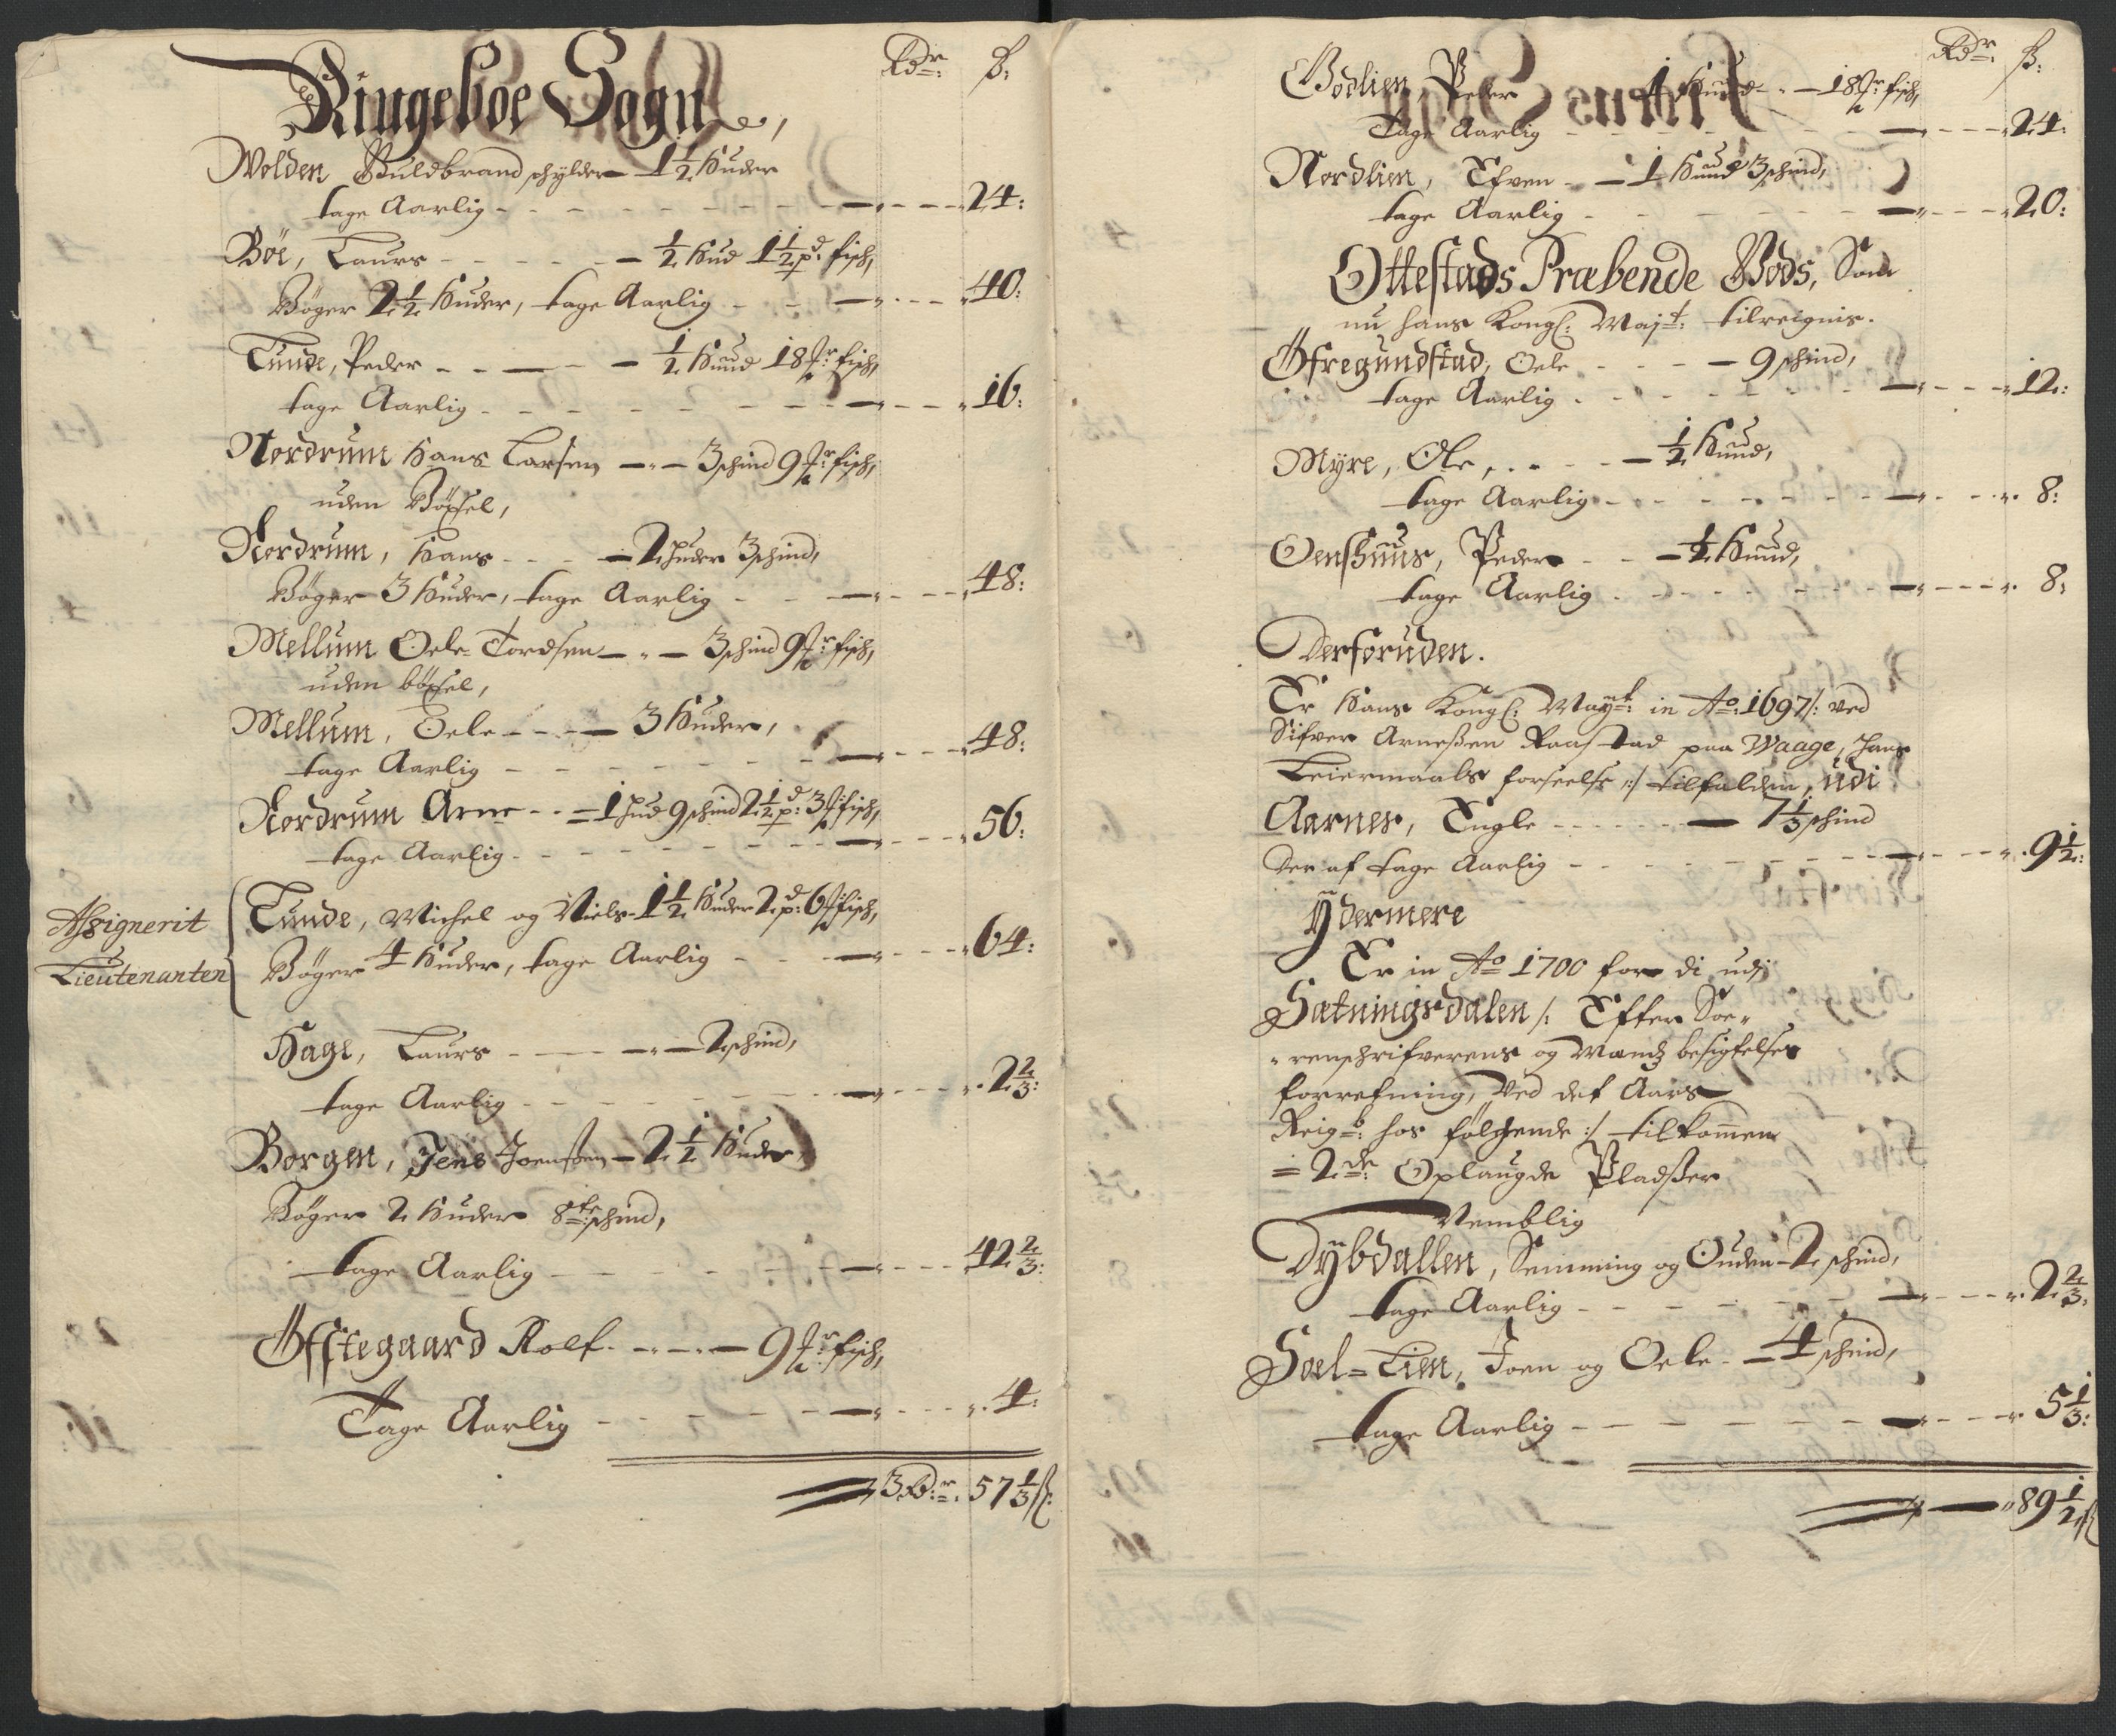 Rdr: ß:
Ringeboe Sogn,
Wolden Guldbrand schylder 1½ Huder
tage Aarlig - - - 24:
Böe, Laurs - - - ½ Hud 1½ pd: fisch,
Böger 2½ Huder, tage Aarlig - - - 40:
Tunde, Peder - - - ½ Huud 18 fisch,
tage Aarlig - - - 16:
Nordrum Hans Larsen - - 3 schind 9 fisch,
uden Böxsel,
Nordrum, Hans - - - 2 huder 3 schind,
Böger 3 Huder, tage Aarlig - - - 48:
Mellum Oele Tordsen - - 3 schind 9 fisch,
uden böxsel,
Mellum, Oele - - - 3 Huder,
tage Aarlig - - - 48:
Nordrum Arne - - 1 hud 9 schind 2½ pd: 3 fisch,
tage Aarlig - - - 56:
Assignerit
Lieutenanten
Tunde, Michel og Niels - 1½ Huder 2 pd: 6 fisch,
Böger 4 Huder, tage Aarlig - - - 64:
Hage, Laurs - - - 2 schind,
tage Aarlig - - - 2⅔:
Borgen, Jens Joensen - 2½ Huder
Böger 2 Huder 8te schind,
tage Aarlig - - - 42⅔:
Öfstegaard Rolf - - - 9 fisch,
Tage Aarlig - - - 4:
3 Dr: 57⅓ ß:
Rdr: ß:
Godlien, Peder 1 Huud - 18 fisch,
Tage Aarlig - - - 24:
Nordlien, Efven - - 1 Huud 3 schind,
tage Aarlig - - - 20:
Ottestads Præbende Gods, Som
nu hans Kongl: Majt: tilreignis.
Öfregundstad, Oele - - - 9 schind,
tage Aarlig - - - 12:
Myre, Ole, - - - ½ Huud,
tage Aarlig - - - 8:
Oenshuus, Peder - - ½ Huud,
tage Aarlig - - - 8:
Derforuden.
Er Hans Kongl: Mayt: in Ao: 1697 /: ved
Sifver Arneßen Raastad paa Waage, hans
Leiermaals forseelse :/ tilfalden, udi
Aarnes, Engle - - - 7⅓ schind
der af tage Aarlig - - - 9½:
Ydermere
Er in Ao 1700 for di udj
Sætningsdalen /: Efter Soe-
-renschrifverens og Mands besigtelses
forretning, Ved det Aars
Reigb: hos fölgende :/ tilkommen
= 2de: Oplaugde Pladßer
Nemblig
Dybdallen, Semming og Ouden - 2 schind,
tage Aarlig - - - 2⅔:
Soel=Lien, Joen og Oele - 4 schind,
tage Aarlig - - - 5⅓:
89½ ß